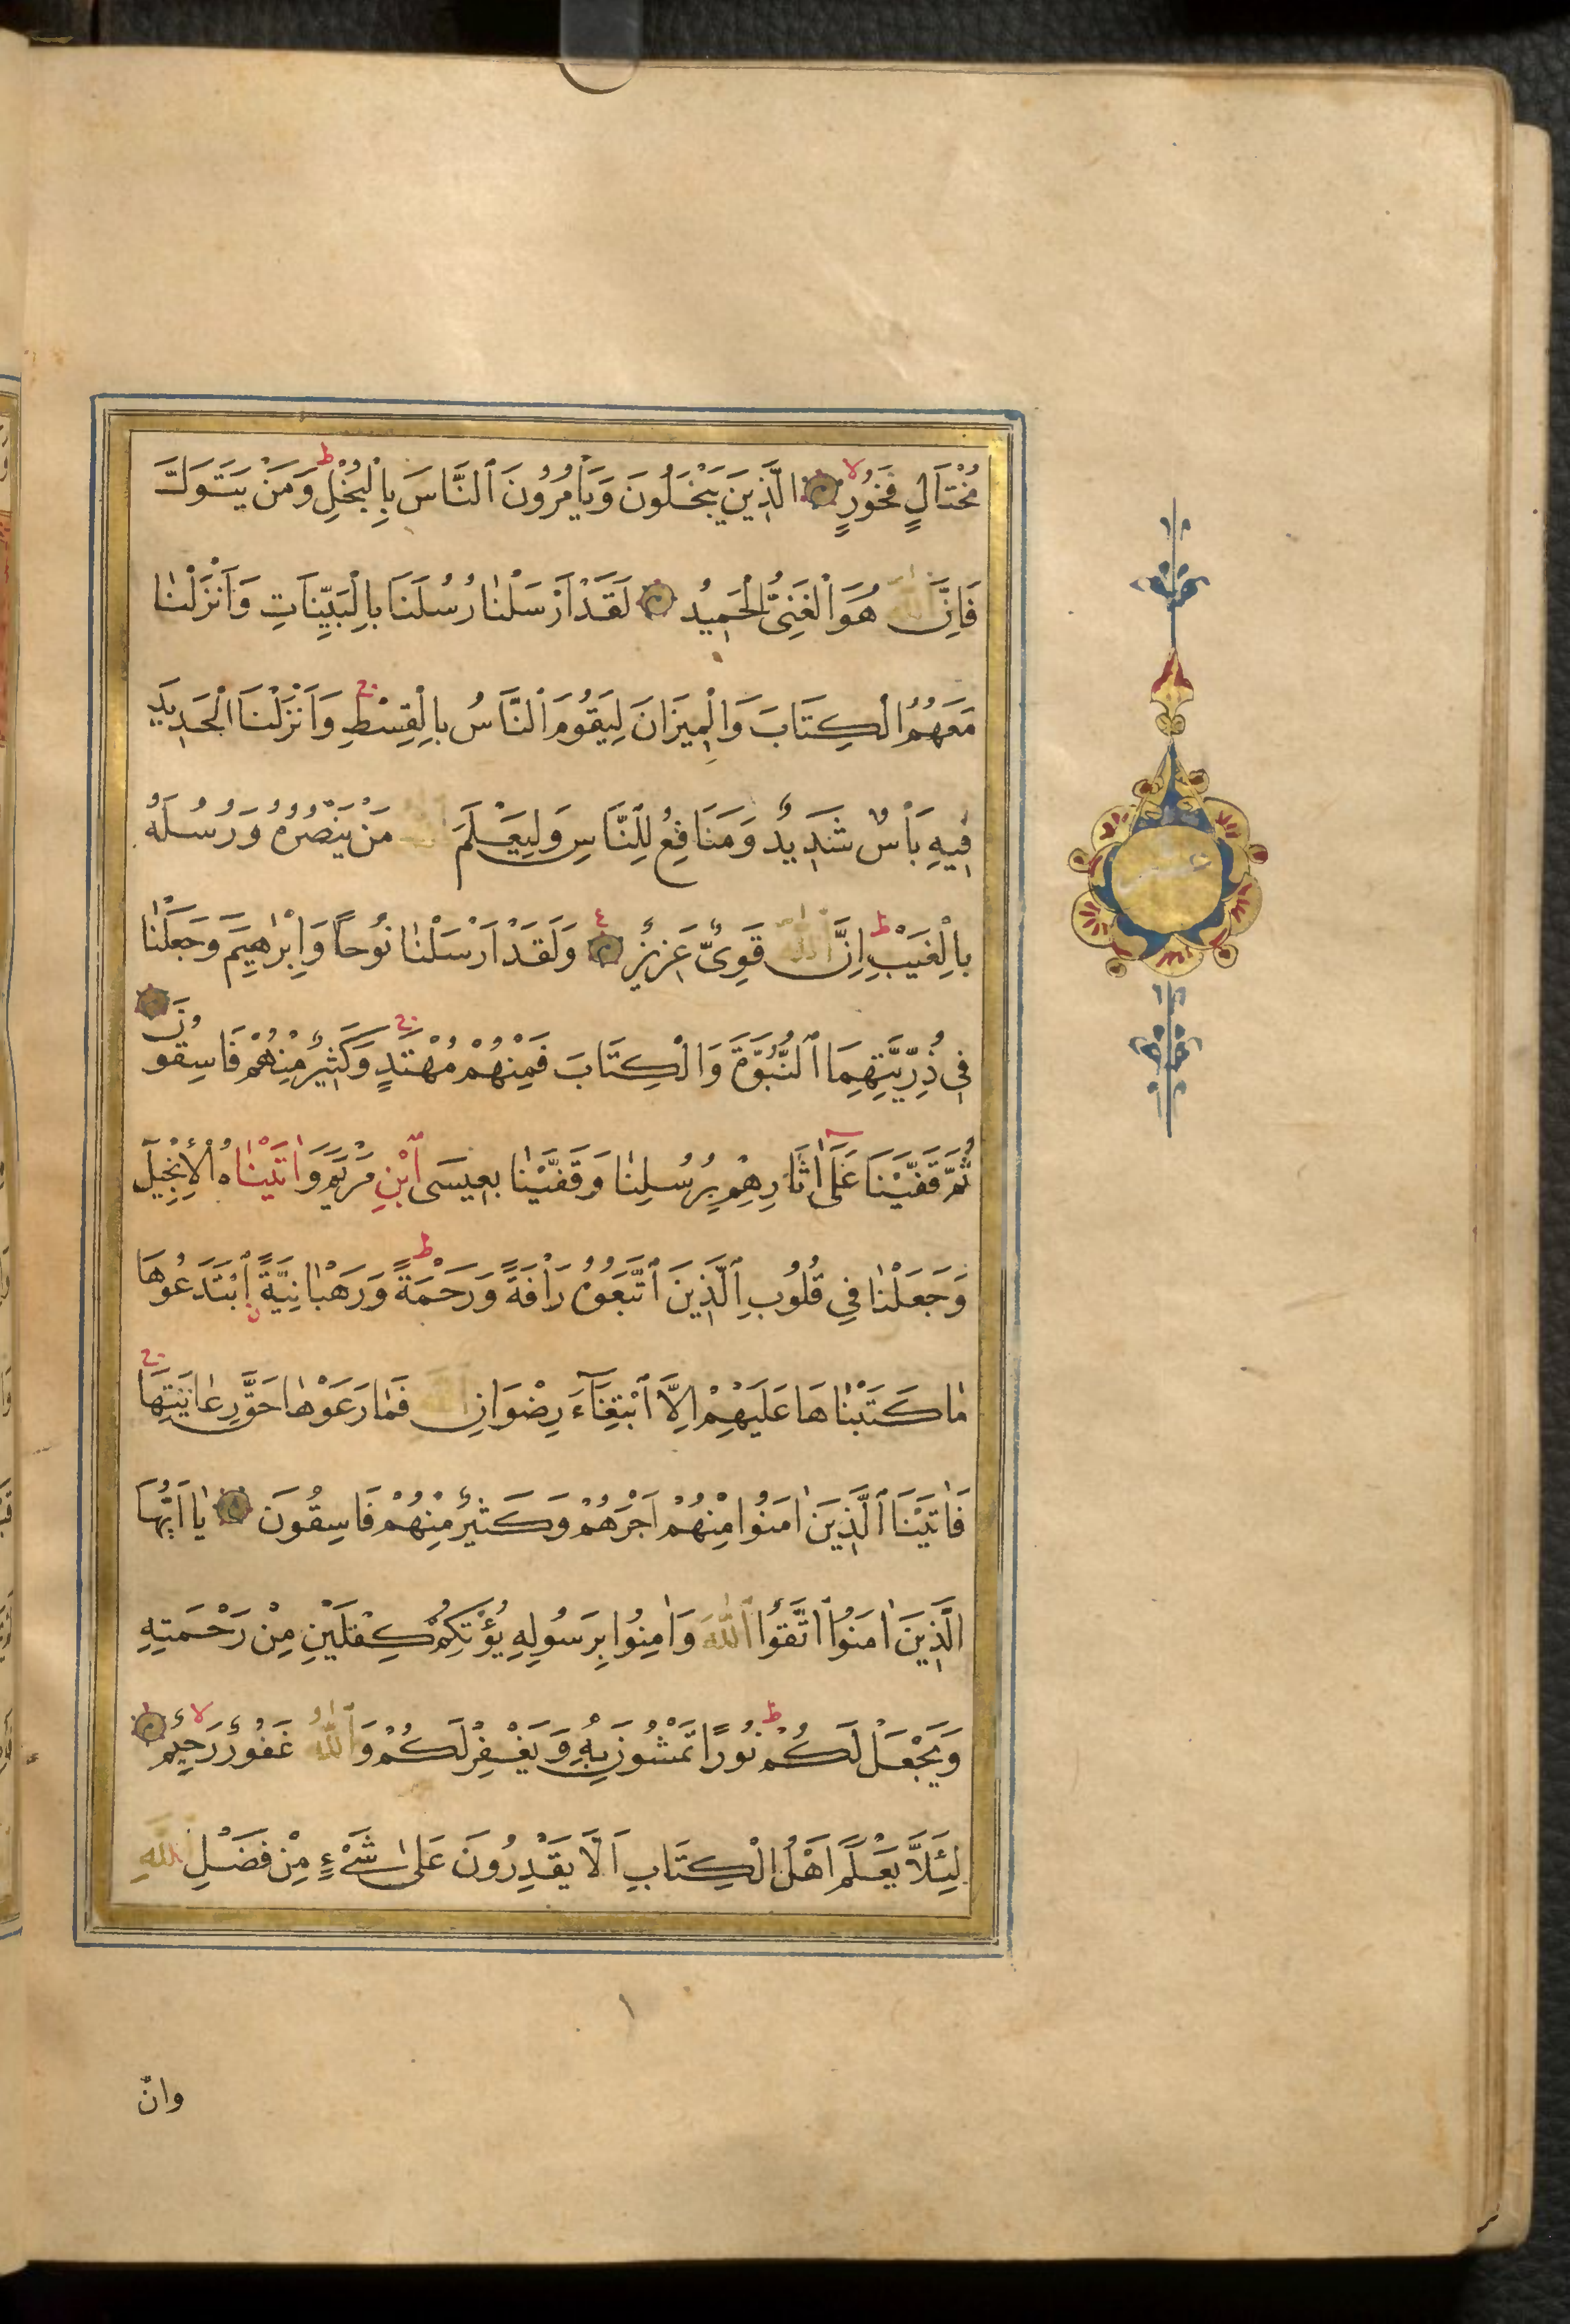 مُخْتَالٍ فَخُورٍ ۙ الَّذِينَ يَبْخَلُونَ وَيَأْمُرُونَ ٱلنَّاسَ بِالْبُخْلِ ط وَمَنْ يَتَوَلَّ
فَاِنَّ اللّٰهَ هُوَ الْغَنِىُّ الْحَمِيدُ لَقَدْ اَرْسَلْنٰا رُسُلَنَا بِالْبَيِّنَاتِ وَاَنْزَلْنٰا
مَعَهُمُ الْكِتَابَ وَالْمِيزَانَ لِيَقُومَ ٱلنَّاسُ بِالْقِسْطِ ج وَاَنْزَلْنَا الْحَدِيدَ
فِيهِ بَأْسٌ شَدِيدٌ وَمَنَافِعُ لِلنَّاسِ وَلِيَعْلَمَ اللّٰهُ مَنْ يَنْصُرُهُ وَرُسُلَهُ
بِالْغَيْبِ ط اِنَّ ٱللّٰهَ قَوِىٌّ عَزِيزٌ ع وَلَقَدْ اَرْسَلْنٰا نُوحًا وَاِبْرٰهِيمَ وَجَعَلْنٰا
فِي ذُرِّيَّتِهِمَا ٱلنُّبُوَّةَ وَالْكِتَابَ فَمِنْهُمْ مُهْتَدٍ ج وَكَثِيرٌ مِنْهُمْ فَاسِقُونَ
ثُمَّ قَفَّيْنَا عَلَى اٰثَارِهِمْ بِرُسُلِنٰا وَقَفَّيْنٰا بِعِيسَى ٱبْنِ مَرْيَمَ وَاٰتَيْنٰاهُ الْاِنْجِيلَ
وَجَعَلْنٰا فِي قُلُوبِ ٱلَّذِينَ ٱتَّبَعُوهُ رَأْفَةً وَرَحْمَةً ط وَرَهْبٰانِيَّةً ٱبْتَدَعُوهَا
مٰا كَتَبْنٰاهَا عَلَيْهِمْ اِلَّا ٱبْتِغَآءَ رِضْوَانِ اللّٰهِ فَمٰا رَعَوْهٰا حَقَّ رِعٰايَتِهَا ج
فَاٰتَيْنَا ٱلَّذِينَ اٰمَنُوا مِنْهُمْ اَجْرَهُمْ وَكَثِيرٌ مِنْهُمْ فَاسِقُونَ يٰا اَيُّهَا
الَّذِينَ اٰمَنُوا ٱتَّقُوا ٱللّٰهَ وَاٰمِنُوا بِرَسُولِهِ يُؤْتِكُمْ كِفْلَيْنِ مِنْ رَحْمَتِهِ
وَيَجْعَلْ لَكُمْ نُورًا تَمْشُونَ بِهِ وَيَغْفِرْ لَكُمْ ط وَٱللّٰهُ غَفُورٌ رَحِيمٌ ۙ
لِئَلَّا يَعْلَمَ اَهْلُ الْكِتَابِ اَلَّا يَقْدِرُونَ عَلٰى شَىْءٍ مِنْ فَضْلِ اللّٰهِ
وانّ